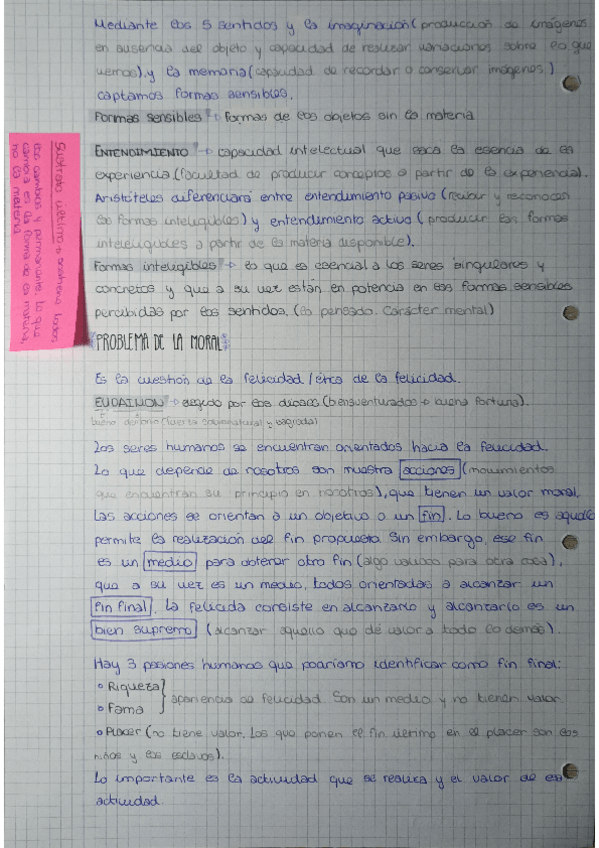 Mediante los 5 sentidos y la imaginación (producción de imágenes
en ausencia del objeto y capacidad de realizar variaciones sobre lo que
vemos) y la memoria (capacidad de recordar o conservar imágenes)
captamos formas sensibles.
Formas sensibles → formas de los objetos sin la materia
ENTENDIMIENTO → capacidad intelectual que saca la esencia de la
experiencia (facultad de producir conceptos a partir de la experiencia).
Aristóteles diferenciará entre entendimiento pasivo (recibir y reconocer
las formas inteligibles) y entendimiento activo (producir las formas
inteligibles a partir de la materia disponible).
Formas inteligibles → lo que es esencial a los seres singulares y
concretos y que a su vez están en potencia en las formas sensibles
percibidas por los sentidos. (lo pensado. Carácter mental)
Sustrato último → sostiene todos
los cambios y permanente. Lo que
cambia es la forma de la materia,
no la materia
PROBLEMA DE LA MORAL
Es la cuestión de la felicidad / ética de la felicidad.
EUDAIMON → elegido por los dioses (bienaventurados → buena fortuna).
bueno demonio (fuerza sobrenatural y sagrada)
Los seres humanos se encuentran orientados hacia la felicidad.
Lo que depende de nosotros son nuestra acciones (movimientos
que encuentran su principio en nosotros), que tienen un valor moral.
Las acciones se orientan a un objetivo o un fin. Lo bueno es aquello
permite la realización del fin propuesto. Sin embargo, ese fin
es un medio para obtener otro fin (algo valioso para otra cosa),
que a su vez es un medio, todos orientados a alcanzar un
fin final. La felicida consiste en alcanzarlo y alcanzarlo es un
bien supremo (alcanzar aquello que dé valor a todo lo demás).
Hay 3 pasiones humanas que podríamos identificar como fin final:
• Riqueza
• Fama
} apariencia de felicidad. Son un medio y no tienen valor
• Placer (no tiene valor, los que ponen el fin último en el placer son los
niños y los esclavos).
Lo importante es la actividad que se realiza y el valor de esa
actividad.